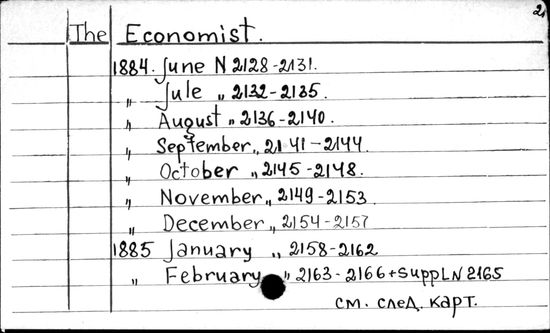 2.
The Economist.
1884. June N 2128-2131.
" Jule " 2132-2135.
" August " 2136-2140.
" September " 2141-2144.
" October " 2145-2148.
" November " 2149-2153
" December " 2154-2157
1885 January " 2158-2162
" February " 2163-2166+Suppl N 2165
см. след. карт.